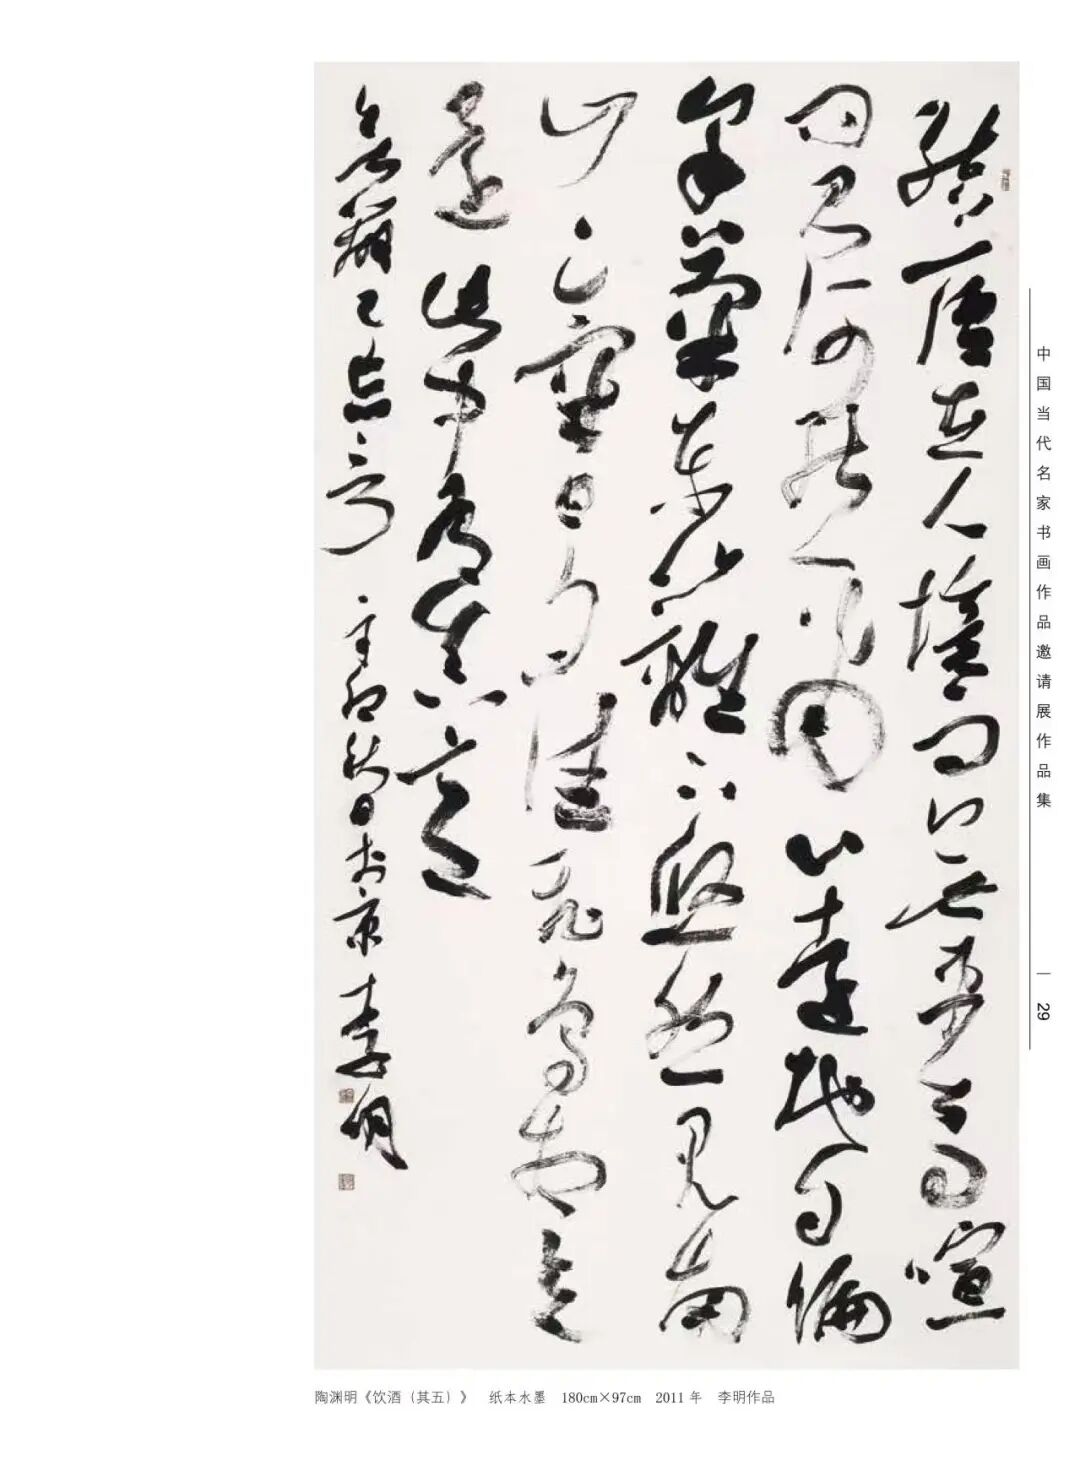 結廬在人境而無車馬喧
問君何能爾心遠地自偏
采菊東籬下悠然見南
山〻氣日夕佳飛鳥相與
還此中有真意
欲辨已忘言 辛卯秋日於京李明
中国当代名家书画作品邀请展作品集
29
陶渊明《饮酒（其五）》 纸本水墨 180cm×97cm 2011 年 李明作品